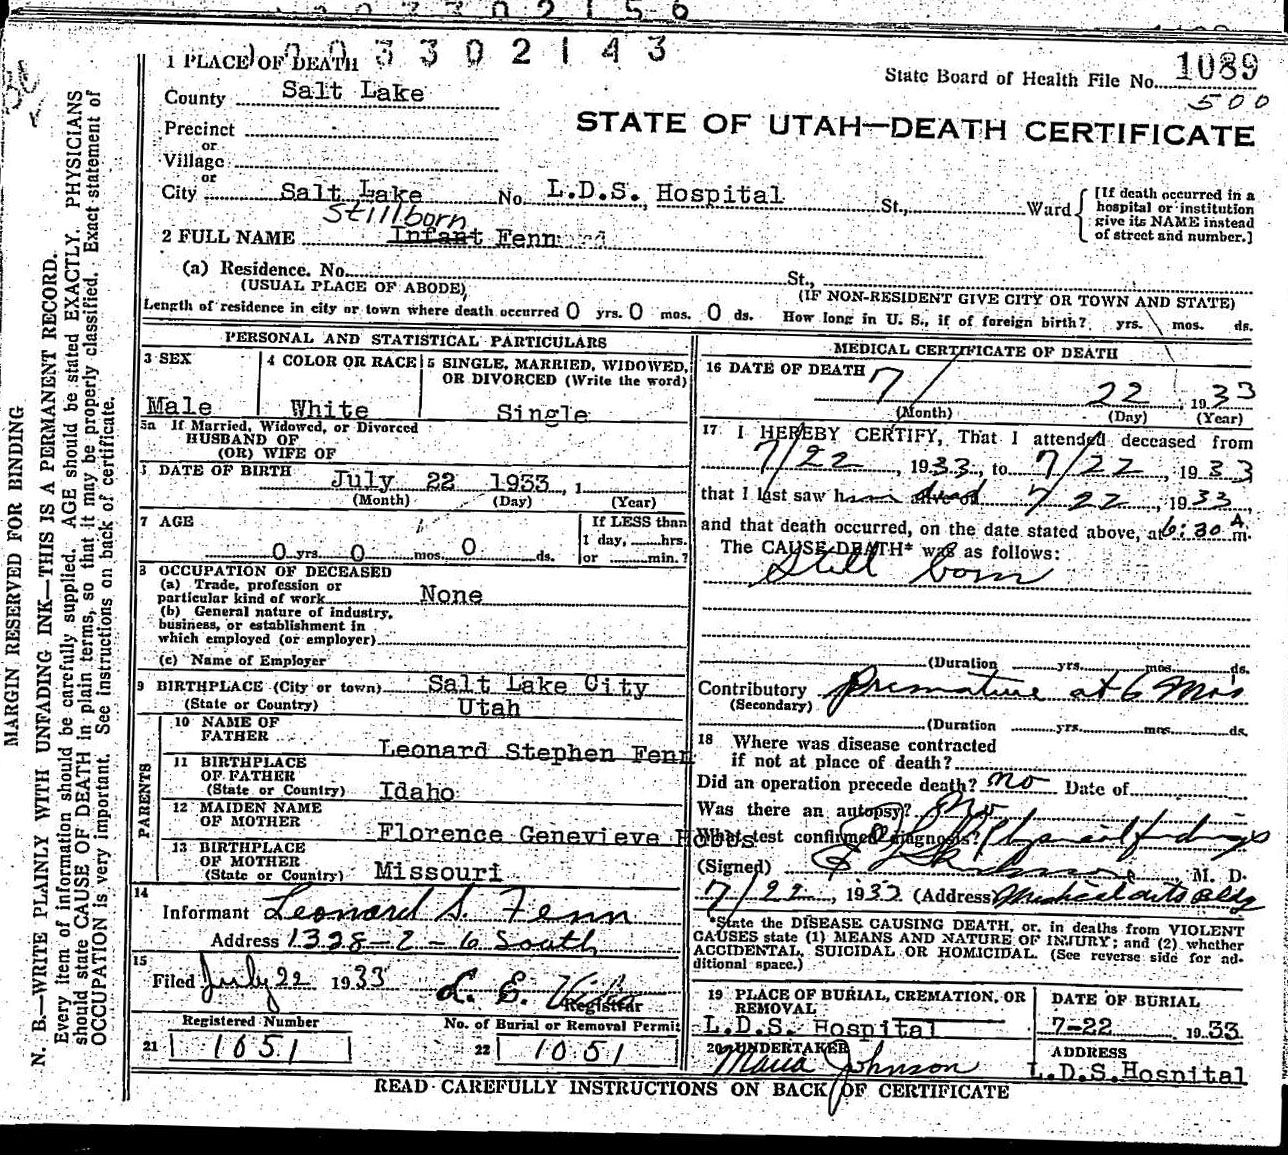 1003302143
1 PLACE OF DEATH
State Board of Health File No. 1089
500
County Salt Lake
STATE OF UTAH—DEATH CERTIFICATE
Precinct
or
Village
or
City Salt Lake No. L.D.S. Hospital St., Ward
[If death occurred in a hospital or institution give its NAME instead of street and number.]
Stillborn
2 FULL NAME Infant Fenn
(a) Residence. No. St.,
(USUAL PLACE OF ABODE) (IF NON-RESIDENT GIVE CITY OR TOWN AND STATE)
Length of residence in city or town where death occurred 0 yrs. 0 mos. 0 ds. How long in U. S., if of foreign birth? yrs. mos. ds.
PERSONAL AND STATISTICAL PARTICULARS
3 SEX
Male
4 COLOR OR RACE
White
5 SINGLE, MARRIED, WIDOWED,
OR DIVORCED (Write the word)
Single
5a If Married, Widowed, or Divorced
HUSBAND OF
(OR) WIFE OF
DATE OF BIRTH
July 22 1933, 1
(Month) (Day) (Year)
7 AGE
0 yrs. 0 mos. 0 ds.
If LESS than
1 day, hrs.
or min.?
8 OCCUPATION OF DECEASED
(a) Trade, profession or
particular kind of work None
(b) General nature of industry,
business, or establishment in
which employed (or employer)
(c) Name of Employer
9 BIRTHPLACE (City or town) Salt Lake City
(State or Country) Utah
PARENTS
10 NAME OF
FATHER Leonard Stephen Fenn
11 BIRTHPLACE
OF FATHER
(State or Country) Idaho
12 MAIDEN NAME
OF MOTHER Florence Genevieve Hobbs
13 BIRTHPLACE
OF MOTHER
(State or Country) Missouri
14
Informant Leonard S. Fenn
Address 1328-2-6 South
15
Filed July 22 1933 L. E.
Registrar
Registered Number
21 1051
No. of Burial or Removal Permit
22 1051
MEDICAL CERTIFICATE OF DEATH
16 DATE OF DEATH
7/ 22, 1933
(Month) (Day) (Year)
17 I HEREBY CERTIFY, That I attended deceased from
7/22, 1933, to 7/22, 1933
that I last saw him dead 7/22, 1933,
and that death occurred, on the date stated above, at 6:30 A m.
The CAUSE DEATH* was as follows:
Still born
(Duration yrs. mos. ds.
Contributory premature at 6 mos
(Secondary)
(Duration yrs. mos. ds.
18 Where was disease contracted
if not at place of death?
Did an operation precede death? no Date of
Was there an autopsy? No
What test confirmed diagnosis? Physical findings
(Signed) M. D.
7/22, 1933 (Address) Medical arts Bldg
*State the DISEASE CAUSING DEATH, or, in deaths from VIOLENT
CAUSES state (1) MEANS AND NATURE OF INJURY; and (2) whether
ACCIDENTAL, SUICIDAL OR HOMICIDAL. (See reverse side for ad-
ditional space.)
19 PLACE OF BURIAL, CREMATION, OR
REMOVAL
L.D.S. Hospital
DATE OF BURIAL
7-22 1933
20 UNDERTAKER
Maria Johnson
ADDRESS
L.D.S. Hospital
READ CAREFULLY INSTRUCTIONS ON BACK OF CERTIFICATE
MARGIN RESERVED FOR BINDING
N. B.—WRITE PLAINLY WITH UNFADING INK—THIS IS A PERMANENT RECORD.
Every item of information should be carefully supplied. AGE should be stated EXACTLY. PHYSICIANS
should state CAUSE OF DEATH in plain terms, so that it may be properly classified. Exact statement of
OCCUPATION is very important. See instructions on back of certificate.